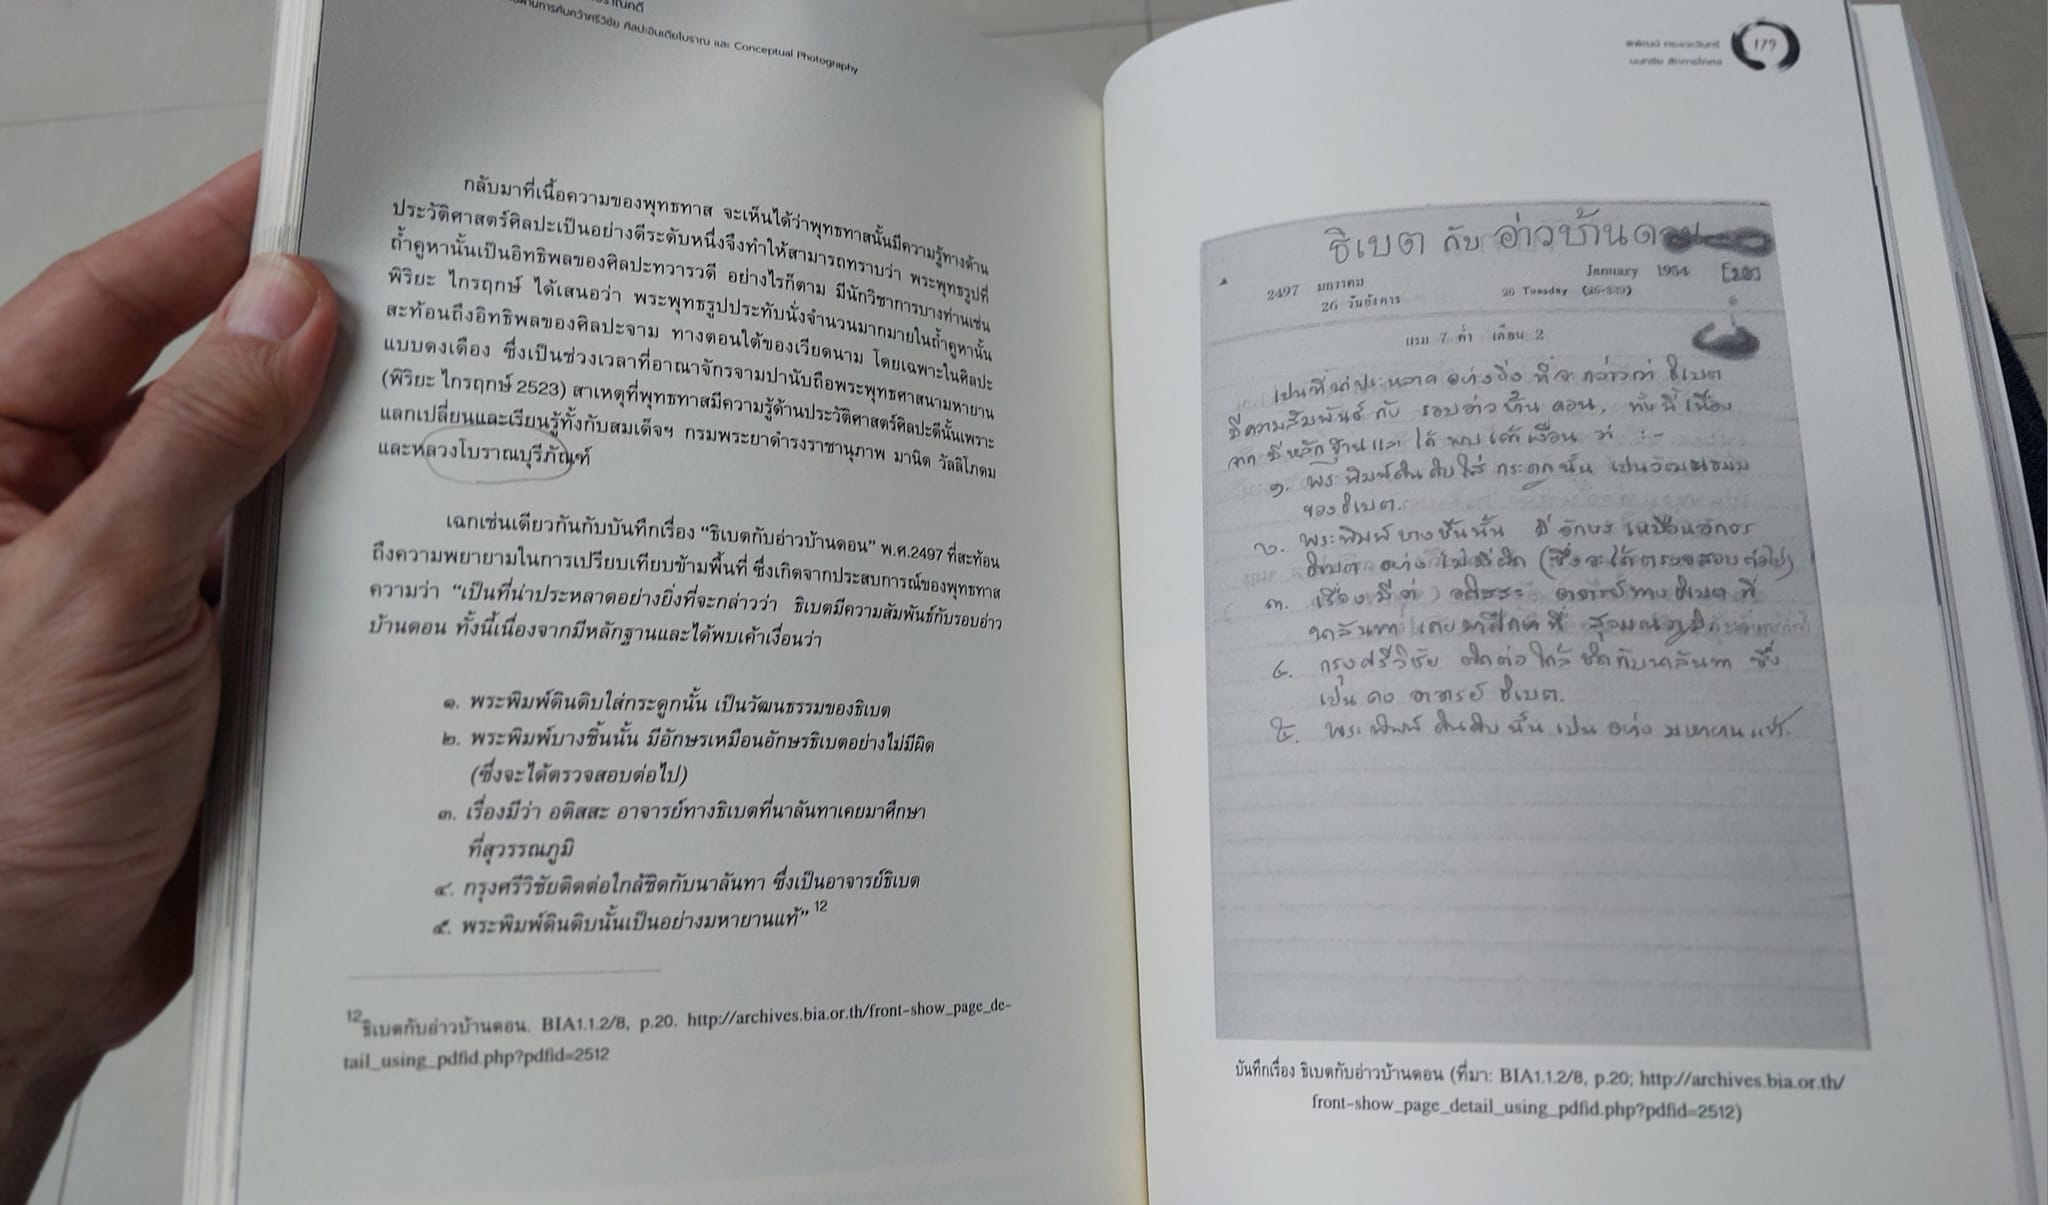 ราณคดี
ผ่านการค้นคว้าศรีวิชัย ศิลปะอินเดียโบราณ และ Conceptual Photography
กลับมาที่เนื้อความของพุทธทาส จะเห็นได้ว่าพุทธทาสนั้นมีความรู้ทางด้าน
ประวัติศาสตร์ศิลปะเป็นอย่างดีระดับหนึ่งจึงทำให้สามารถทราบว่า พระพุทธรูปที่
ถ้ำคูหานั้นเป็นอิทธิพลของศิลปะทวารวดี อย่างไรก็ตาม มีนักวิชาการบางท่านเช่น
พิริยะ ไกรฤกษ์ ได้เสนอว่า พระพุทธรูปประทับนั่งจำนวนมากมายในถ้ำคูหานั้น
สะท้อนถึงอิทธิพลของศิลปะจาม ทางตอนใต้ของเวียดนาม โดยเฉพาะในศิลปะ
แบบดงเดือง ซึ่งเป็นช่วงเวลาที่อาณาจักรจามปานับถือพระพุทธศาสนามหายาน
(พิริยะ ไกรฤกษ์ 2523) สาเหตุที่พุทธทาสมีความรู้ด้านประวัติศาสตร์ศิลปะดีนั้นเพราะ
แลกเปลี่ยนและเรียนรู้ทั้งกับสมเด็จฯ กรมพระยาดำรงราชานุภาพ มานิต วัลลิโภดม
และหลวงโบราณบุรีภัณฑ์
เฉกเช่นเดียวกันกับบันทึกเรื่อง “ธิเบตกับอ่าวบ้านดอน” พ.ศ.2497 ที่สะท้อน
ถึงความพยายามในการเปรียบเทียบข้ามพื้นที่ ซึ่งเกิดจากประสบการณ์ของพุทธทาส
ความว่า “เป็นที่น่าประหลาดอย่างยิ่งที่จะกล่าวว่า ธิเบตมีความสัมพันธ์กับรอบอ่าว
บ้านดอน ทั้งนี้เนื่องจากมีหลักฐานและได้พบเค้าเงื่อนว่า
๑. พระพิมพ์ดินดิบใส่กระดูกนั้น เป็นวัฒนธรรมของธิเบต
๒. พระพิมพ์บางชิ้นนั้น มีอักษรเหมือนอักษรธิเบตอย่างไม่มีผิด
(ซึ่งจะได้ตรวจสอบต่อไป)
๓. เรื่องมีว่า อติสสะ อาจารย์ทางธิเบตที่นาลันทาเคยมาศึกษา
ที่สุวรรณภูมิ
๔. กรุงศรีวิชัยติดต่อใกล้ชิดกับนาลันทา ซึ่งเป็นอาจารย์ธิเบต
๕. พระพิมพ์ดินดิบนั้นเป็นอย่างมหายานแท้” 12
12 ธิเบตกับอ่าวบ้านดอน. BIA1.1.2/8, p.20. http://archives.bia.or.th/front-show_page_de-
tail_using_pdfid.php?pdfid=2512
พิพัฒน์ กระแจะจันทร์
นนทชัย สักการโกศล
179
ธิเบต กับ อ่าวบ้านดอน
2497 มกราคม January 1954
26 วันอังคาร 26 Tuesday
แรม 7 ค่ำ เดือน 2
เป็นที่น่าประหลาด อย่างยิ่ง ที่จะกล่าวว่า ธิเบต
มีความสัมพันธ์ กับ รอบอ่าวบ้านดอน, ทั้งนี้ เนื่อง
จาก มีหลักฐานและ ได้ พบ เค้าเงื่อน ว่า :-
๑. พระพิมพ์ดินดิบใส่ กระดูกนั้น เป็นวัฒนธรรม
ของธิเบต.
๒. พระพิมพ์ บางชิ้นนั้น มี อักษร เหมือนอักษร
ธิเบต อย่างไม่มีผิด (ซึ่งจะได้ตรวจสอบต่อไป)
๓. เรื่อง มีว่า อติสสะ อาจารย์ทางธิเบต ที่
นาลันทา เคยมาศึกษา ที่ สุวรรณภูมิ
๔. กรุงศรีวิชัย ติดต่อ ใกล้ชิดกับนาลันทา ซึ่ง
เป็น อาจารย์ ธิเบต.
๕. พระพิมพ์ ดินดิบ นั้น เป็น อย่าง มหายานแท้.
บันทึกเรื่อง ธิเบตกับอ่าวบ้านดอน (ที่มา: BIA1.1.2/8, p.20; http://archives.bia.or.th/
front-show_page_detail_using_pdfid.php?pdfid=2512)